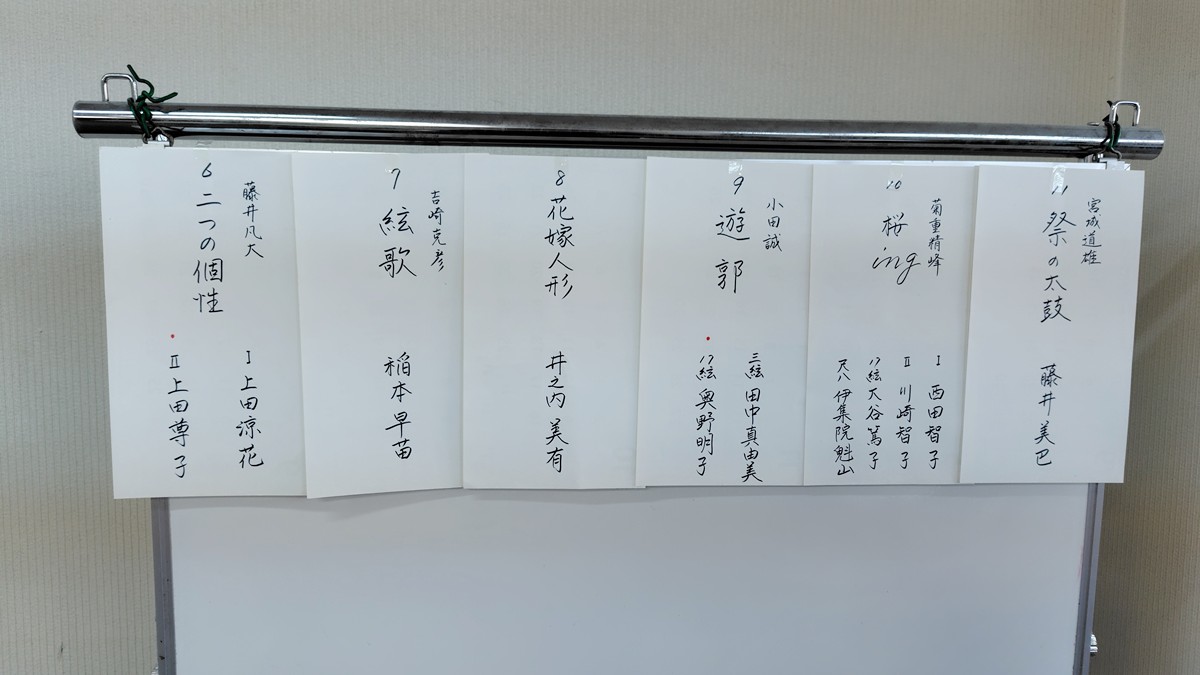 6 二つの個性
藤井凡大
I 上田涼花
II 上田尊子
7 絃歌
吉崎克彦
稲本早苗
8 花嫁人形
井之内美有
9 遊郭
小田誠
三絃 田中真由美
17絃 奥野明子
10 桜ing
菊重精峰
I 西田智子
II 川崎智子
17絃 大谷篤子
尺八 伊集院魁山
11 祭の太鼓
宮城道雄
藤井美巴